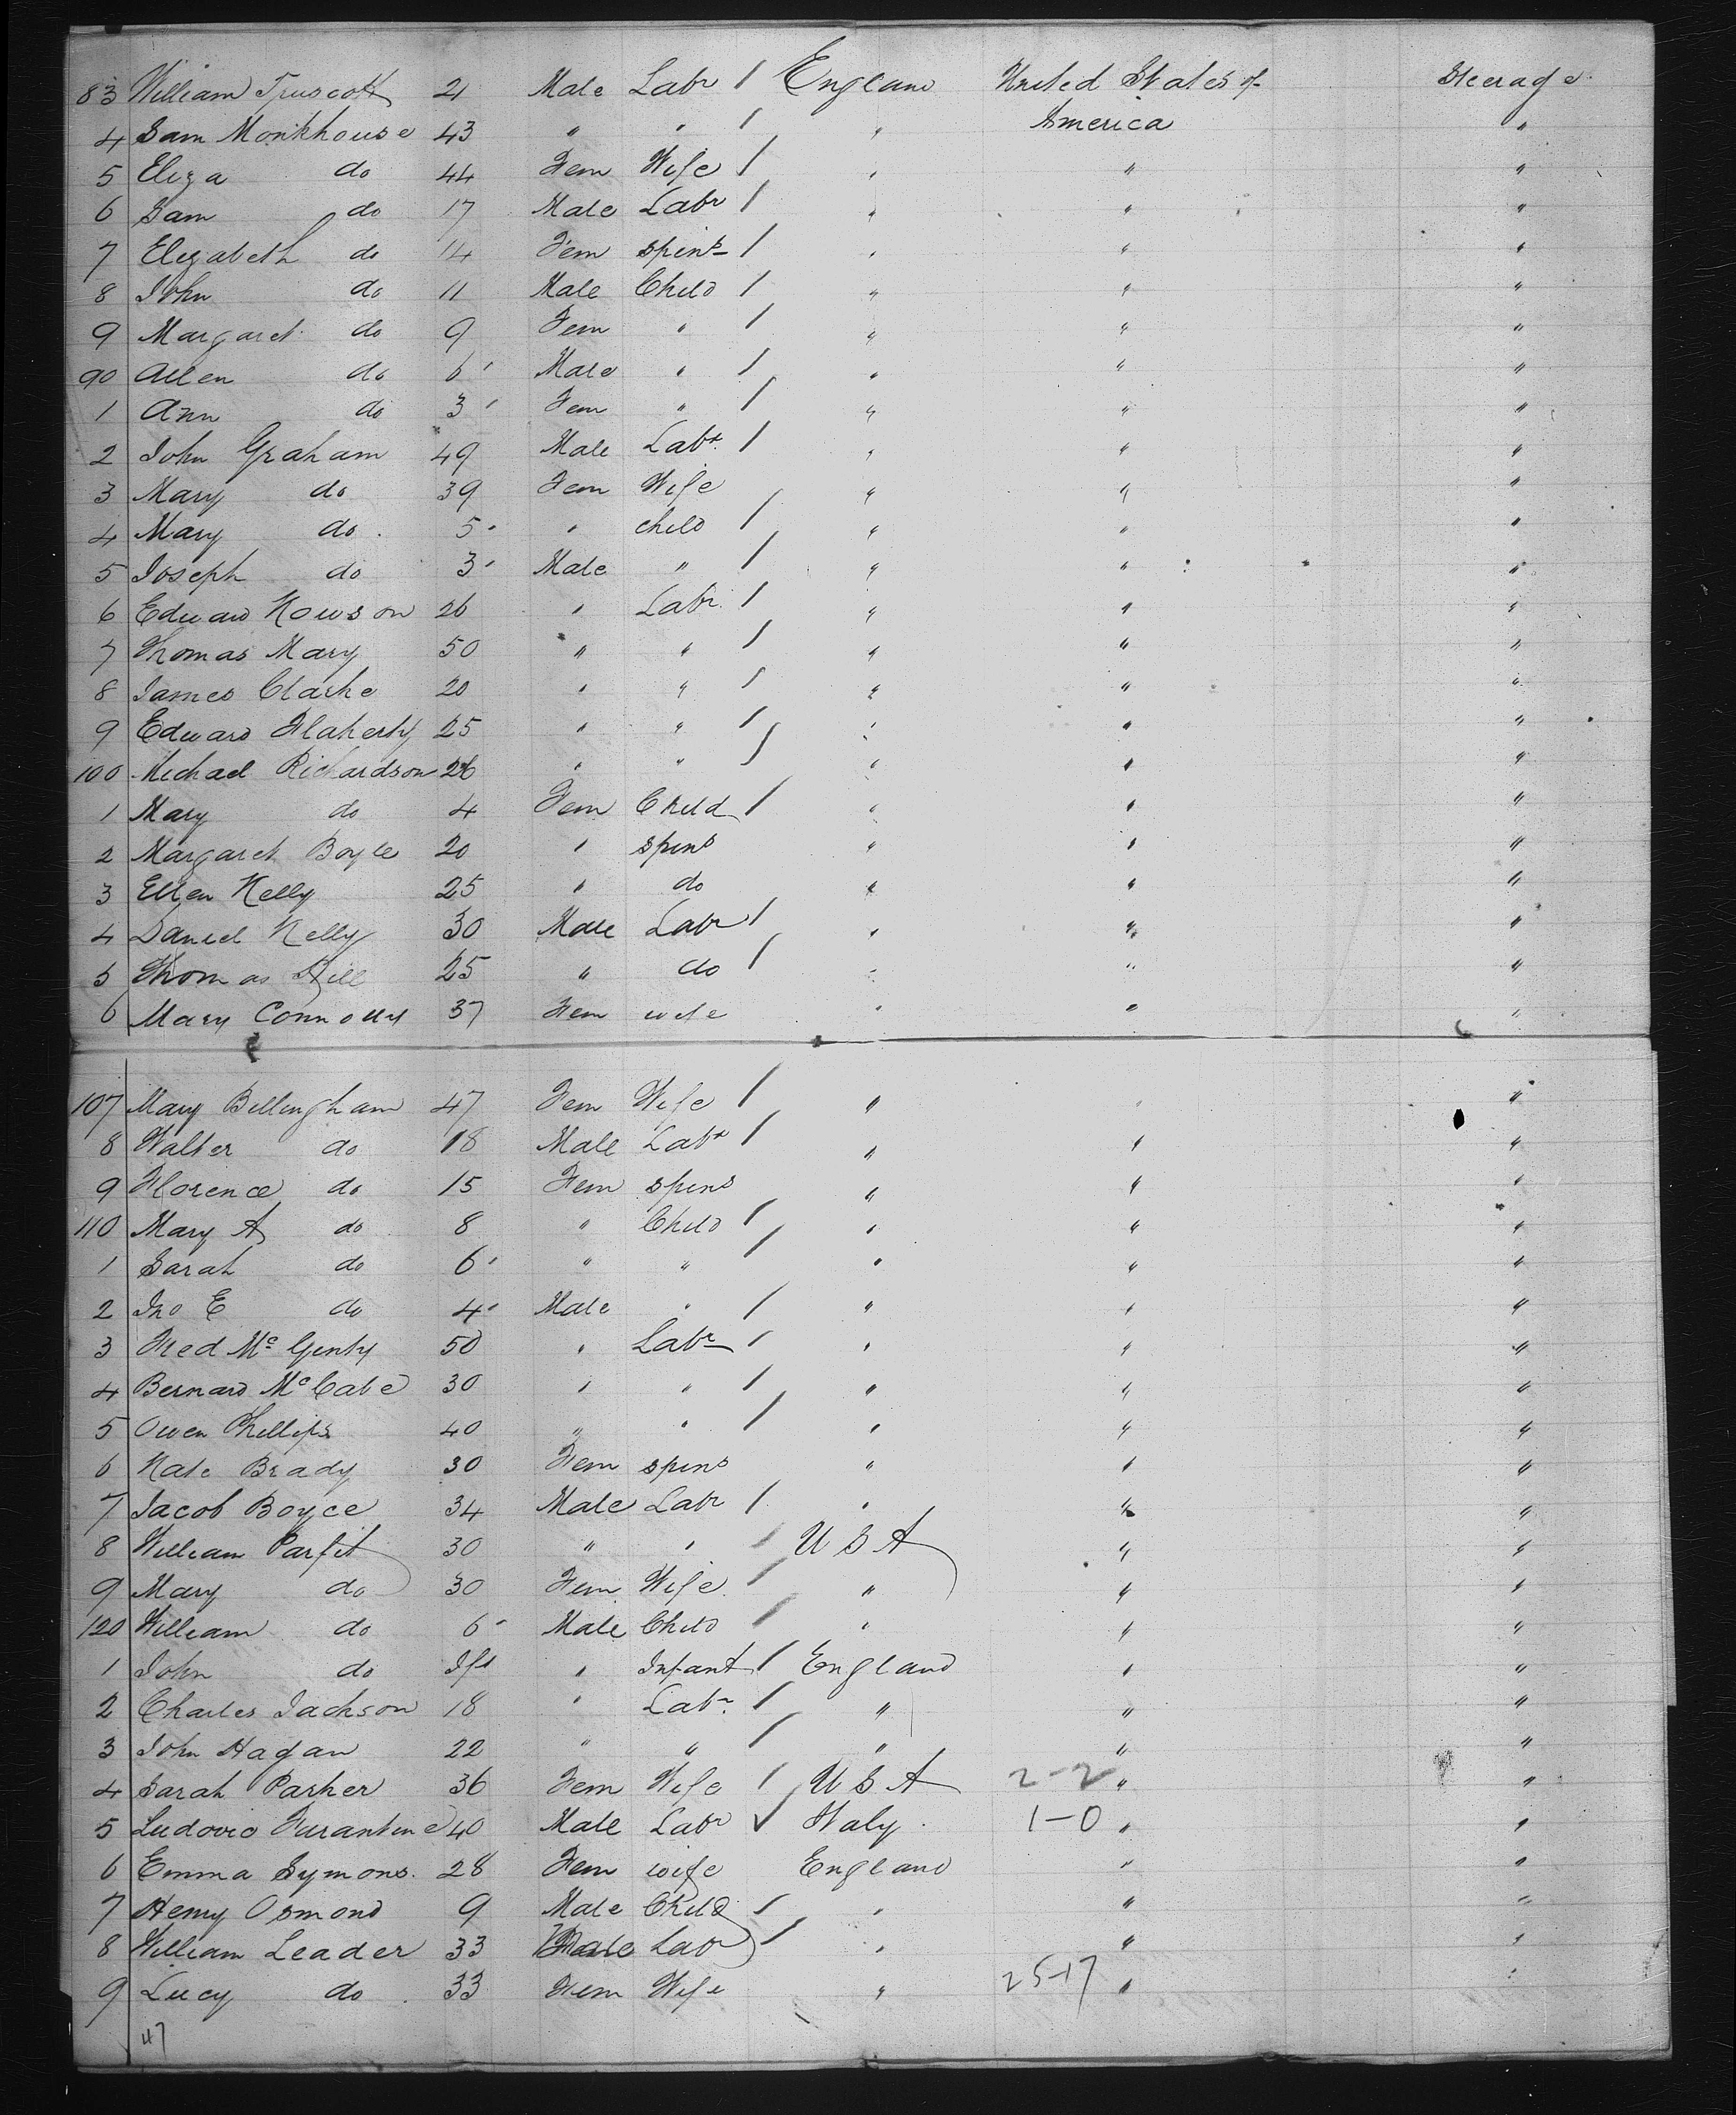 83 William Truscott 21 Male Labr / England United States of Steerage
America
4 Sam Monkhouse 43 " " / " "
5 Eliza do 44 Fem Wife / " " "
6 Sam do 17 Male Labr / " " "
7 Elizabeth do 14 Fem spins / " " "
8 John do 11 Male Child / " " "
9 Margaret do 9 Fem " / " " "
90 Allen do 6 Male " / " " "
1 Ann do 3 Fem " / " " "
2 John Graham 49 Male Labr / " " "
3 Mary do 39 Fem Wife " " "
4 Mary do 5 " child / " " "
5 Joseph do 3 Male " / " " "
6 Edward Howson 26 " Labr / " " "
7 Thomas Mary 50 " " / " " "
8 James Clarke 20 " " / " " "
9 Edward Flaherty 25 " " / " " "
100 Michael Richardson 26 " " / " " "
1 Mary do 4 Fem Child / " " "
2 Margaret Boyle 20 " spins " " "
3 Ellen Kelly 25 " do " " "
4 Daniel Kelly 30 Male Labr / " " "
5 Thomas 25 " do / " " "
6 Mary Connolly 37 Fem wife " " "
107 Mary Billingham 47 Fem Wife / " " "
8 Walter do 18 Male Labr / " " "
9 Florence do 15 Fem spins " " "
110 Mary A do 8 " Child / " " "
1 Sarah do 6 " " / " " "
2 Jno E do 4 Male " / " " "
3 Fred Mc Ginty 50 " Labr / " " "
4 Bernard McCabe 30 " " / " " "
5 Owen Phillips 40 " " / " " "
6 Kate Brady 30 Fem spins " " "
7 Jacob Boyce 34 Male Labr / " " "
8 William Parfit 30 " " / U S A " "
9 Mary do 30 Fem Wife / " " "
120 William do 6 Male Child / " " "
1 John do Ift " Infant / England " "
2 Charles Jackson 18 " Labr / " " "
3 John Hagan 22 " " / " " "
4 Sarah Parker 36 Fem Wife / U S A 2-2 " "
5 Ludovic 40 Male Labr ✓ Italy 1-0 " "
6 Emma Symons. 28 Fem wife England " "
7 Henry Osmond 9 Male Child / " " "
8 William Leader 33 Male Labr / " " "
9 Lucy do 33 Fem Wife " 25-17 " "
47